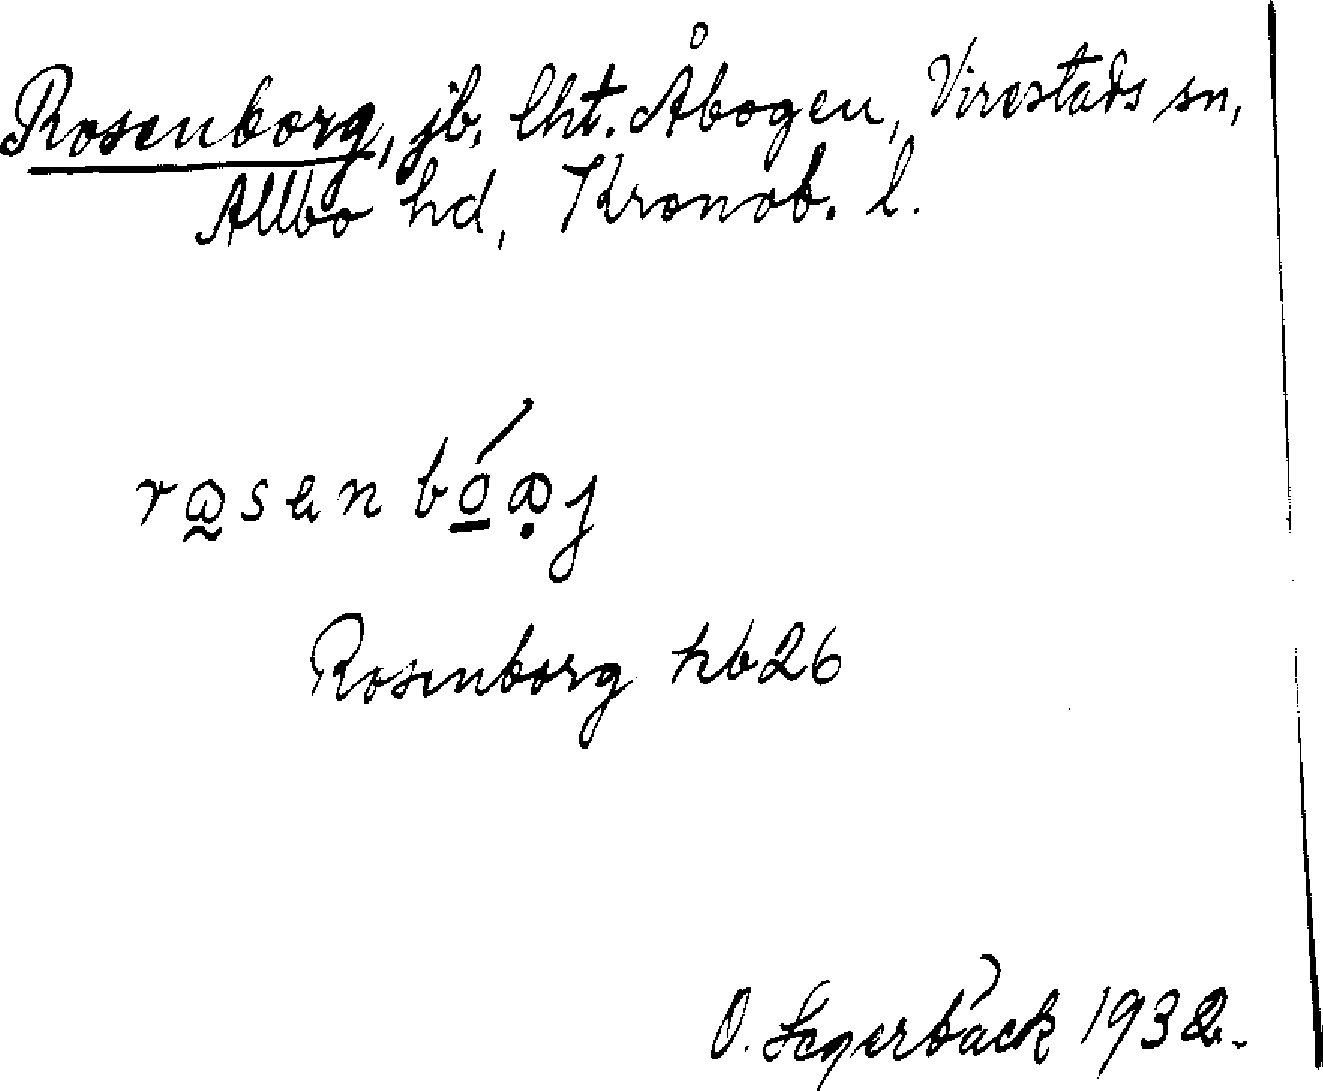 Rosenborg, jb, lht. Åbogen, Virestads sn,
Allbo hd, Kronob. l.
Rosenborg hb26
O. Segerbäck 1932.